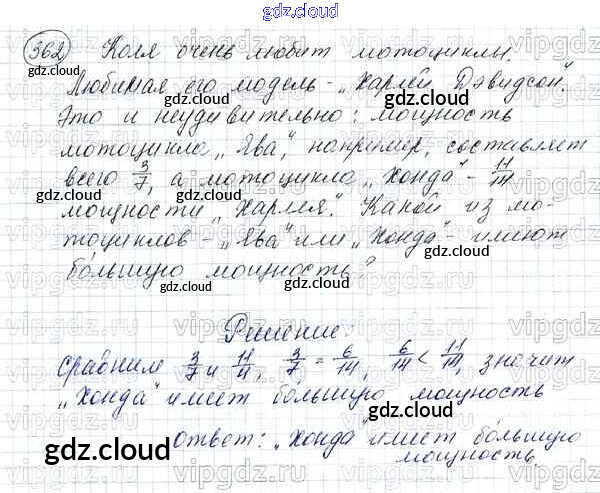 gdz.cloud
362 Коля очень любит мотоциклы.
Любимая его модель - „Харлей Дэвидсон".
Это и неудивительно: мощность
мотоцикла „Ява", например, составляет
всего 3/7, а мотоцикла „Хонда" - 11/14
мощности „Харлея". Какой из мо-
тоциклов - „Ява" или „Хонда" - имеют
бо́льшую мощность?
Решение:
Сравним 3/7 и 11/14, 3/7 = 6/14, 6/14 < 11/14, значит
„Хонда" имеет бо́льшую мощность
ответ: „Хонда" имеет бо́льшую
мощность.